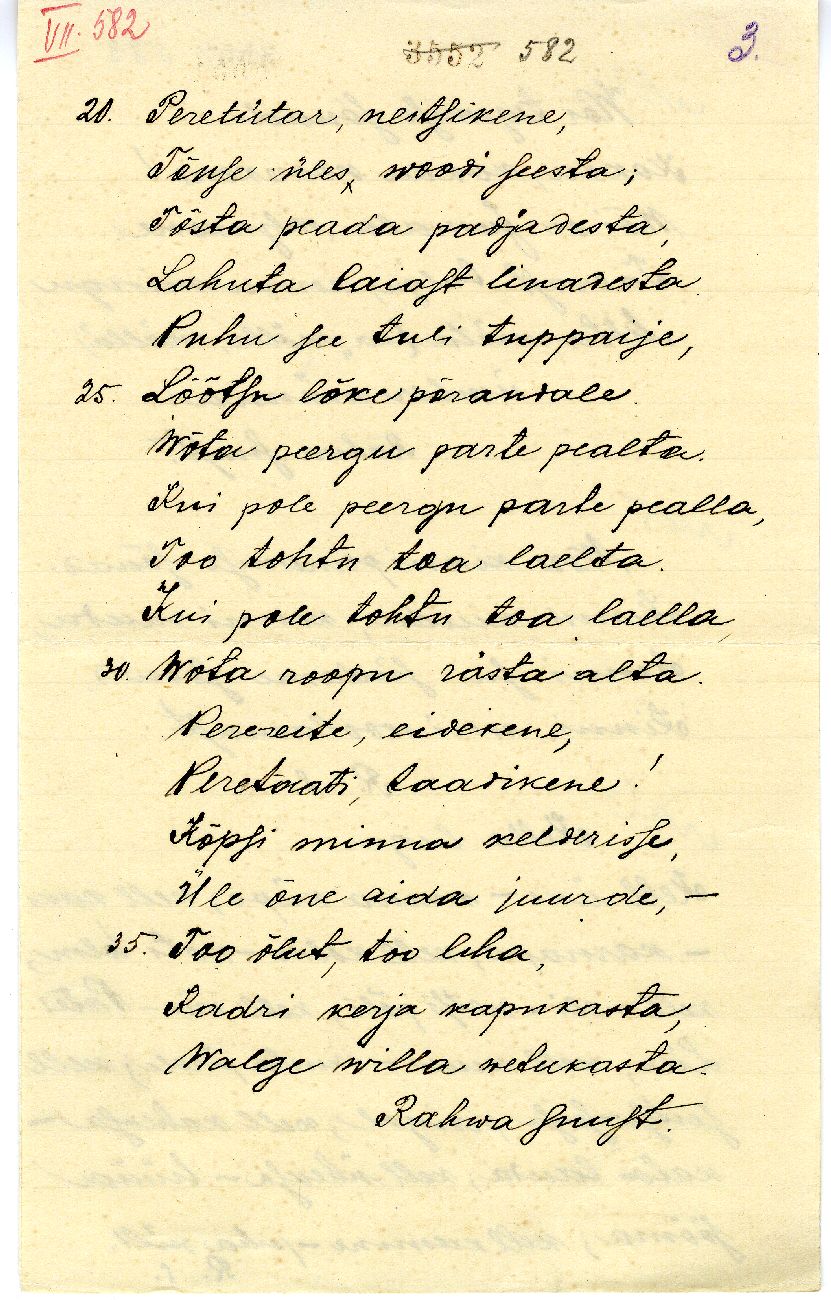 VII. 582
3552 582
3.
20. Peretütar, neitsikene,
Tõuse üles, woodi seesta;
Tõsta peada padjadesta,
Lahuta laiast linadesta.
Puhu see tuli tuppaije,
25. Lõõtsu lõke põrandale.
Wõta peergu parte pealta.
Kui pole peergu parte pealla,
Too tohtu toa laelta.
Kui pole tohtu toa laella,
30. Wõta roopu rästa alta.
Pereeite, eidekene,
Peretaati, taadikene!
Kõpsi minna kelderisse,
Üle õue aida juurde, –
35. Too õlut, too liha,
Kadri kerja kapukasta,
Walge willa wetukasta.
Rahwa suust.